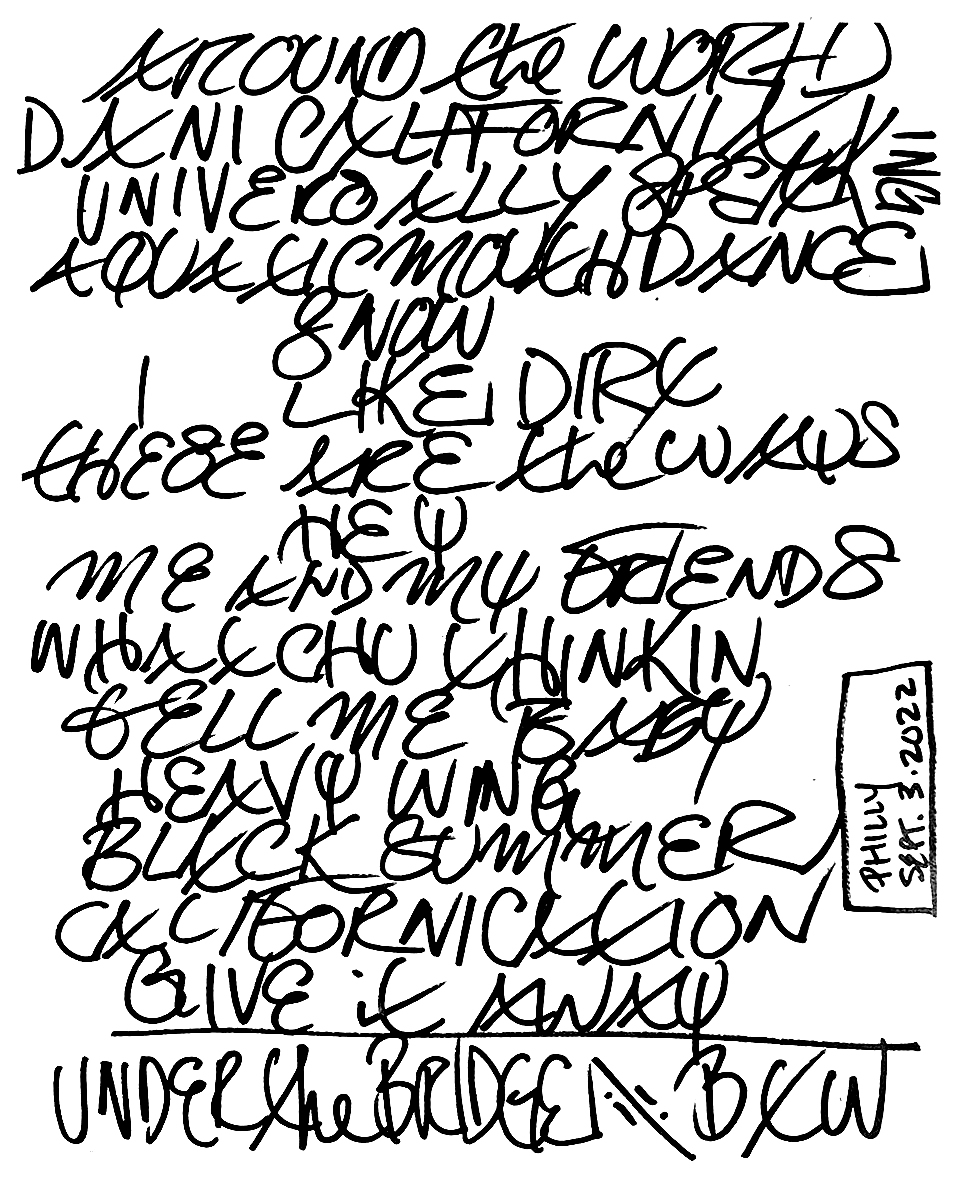 AROUND the WORLD
DANI CALIFORNIA
UNIVERSALLY SPEAKING
AQUATIC MOUTH DANCE
& NOW
I LIKE DIRT
THESE ARE the WAYS
HEY
ME AND MY FRIENDS
WHATCHU THINKIN
TELL ME BABY
HEAVY WING
BLACK SUMMER
CALIFORNICATION
GIVE it AWAY
UNDER the BRIDGE ·//· BTW
PHILLY
SEPT. 3.2022